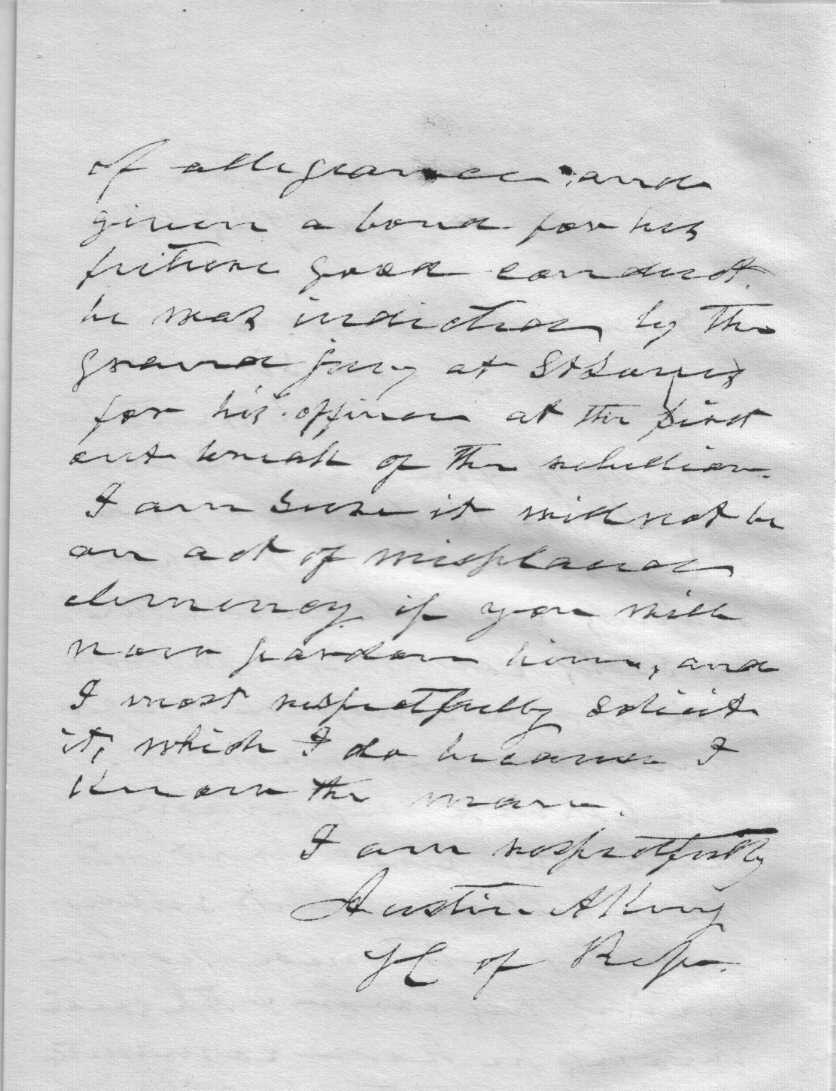 of allegiance and
given a bond for his
future good conduct.
he was indicted by the
grand jury at St Louis
for his offence at the first
out break of the rebellion.
I am sure it will not be
an act of misplaced
clemency if you will
now pardon him, and
I most respectfully solicit
it, which I do because I
know the man.
I am respectfully
Austin A King
H of Rep.